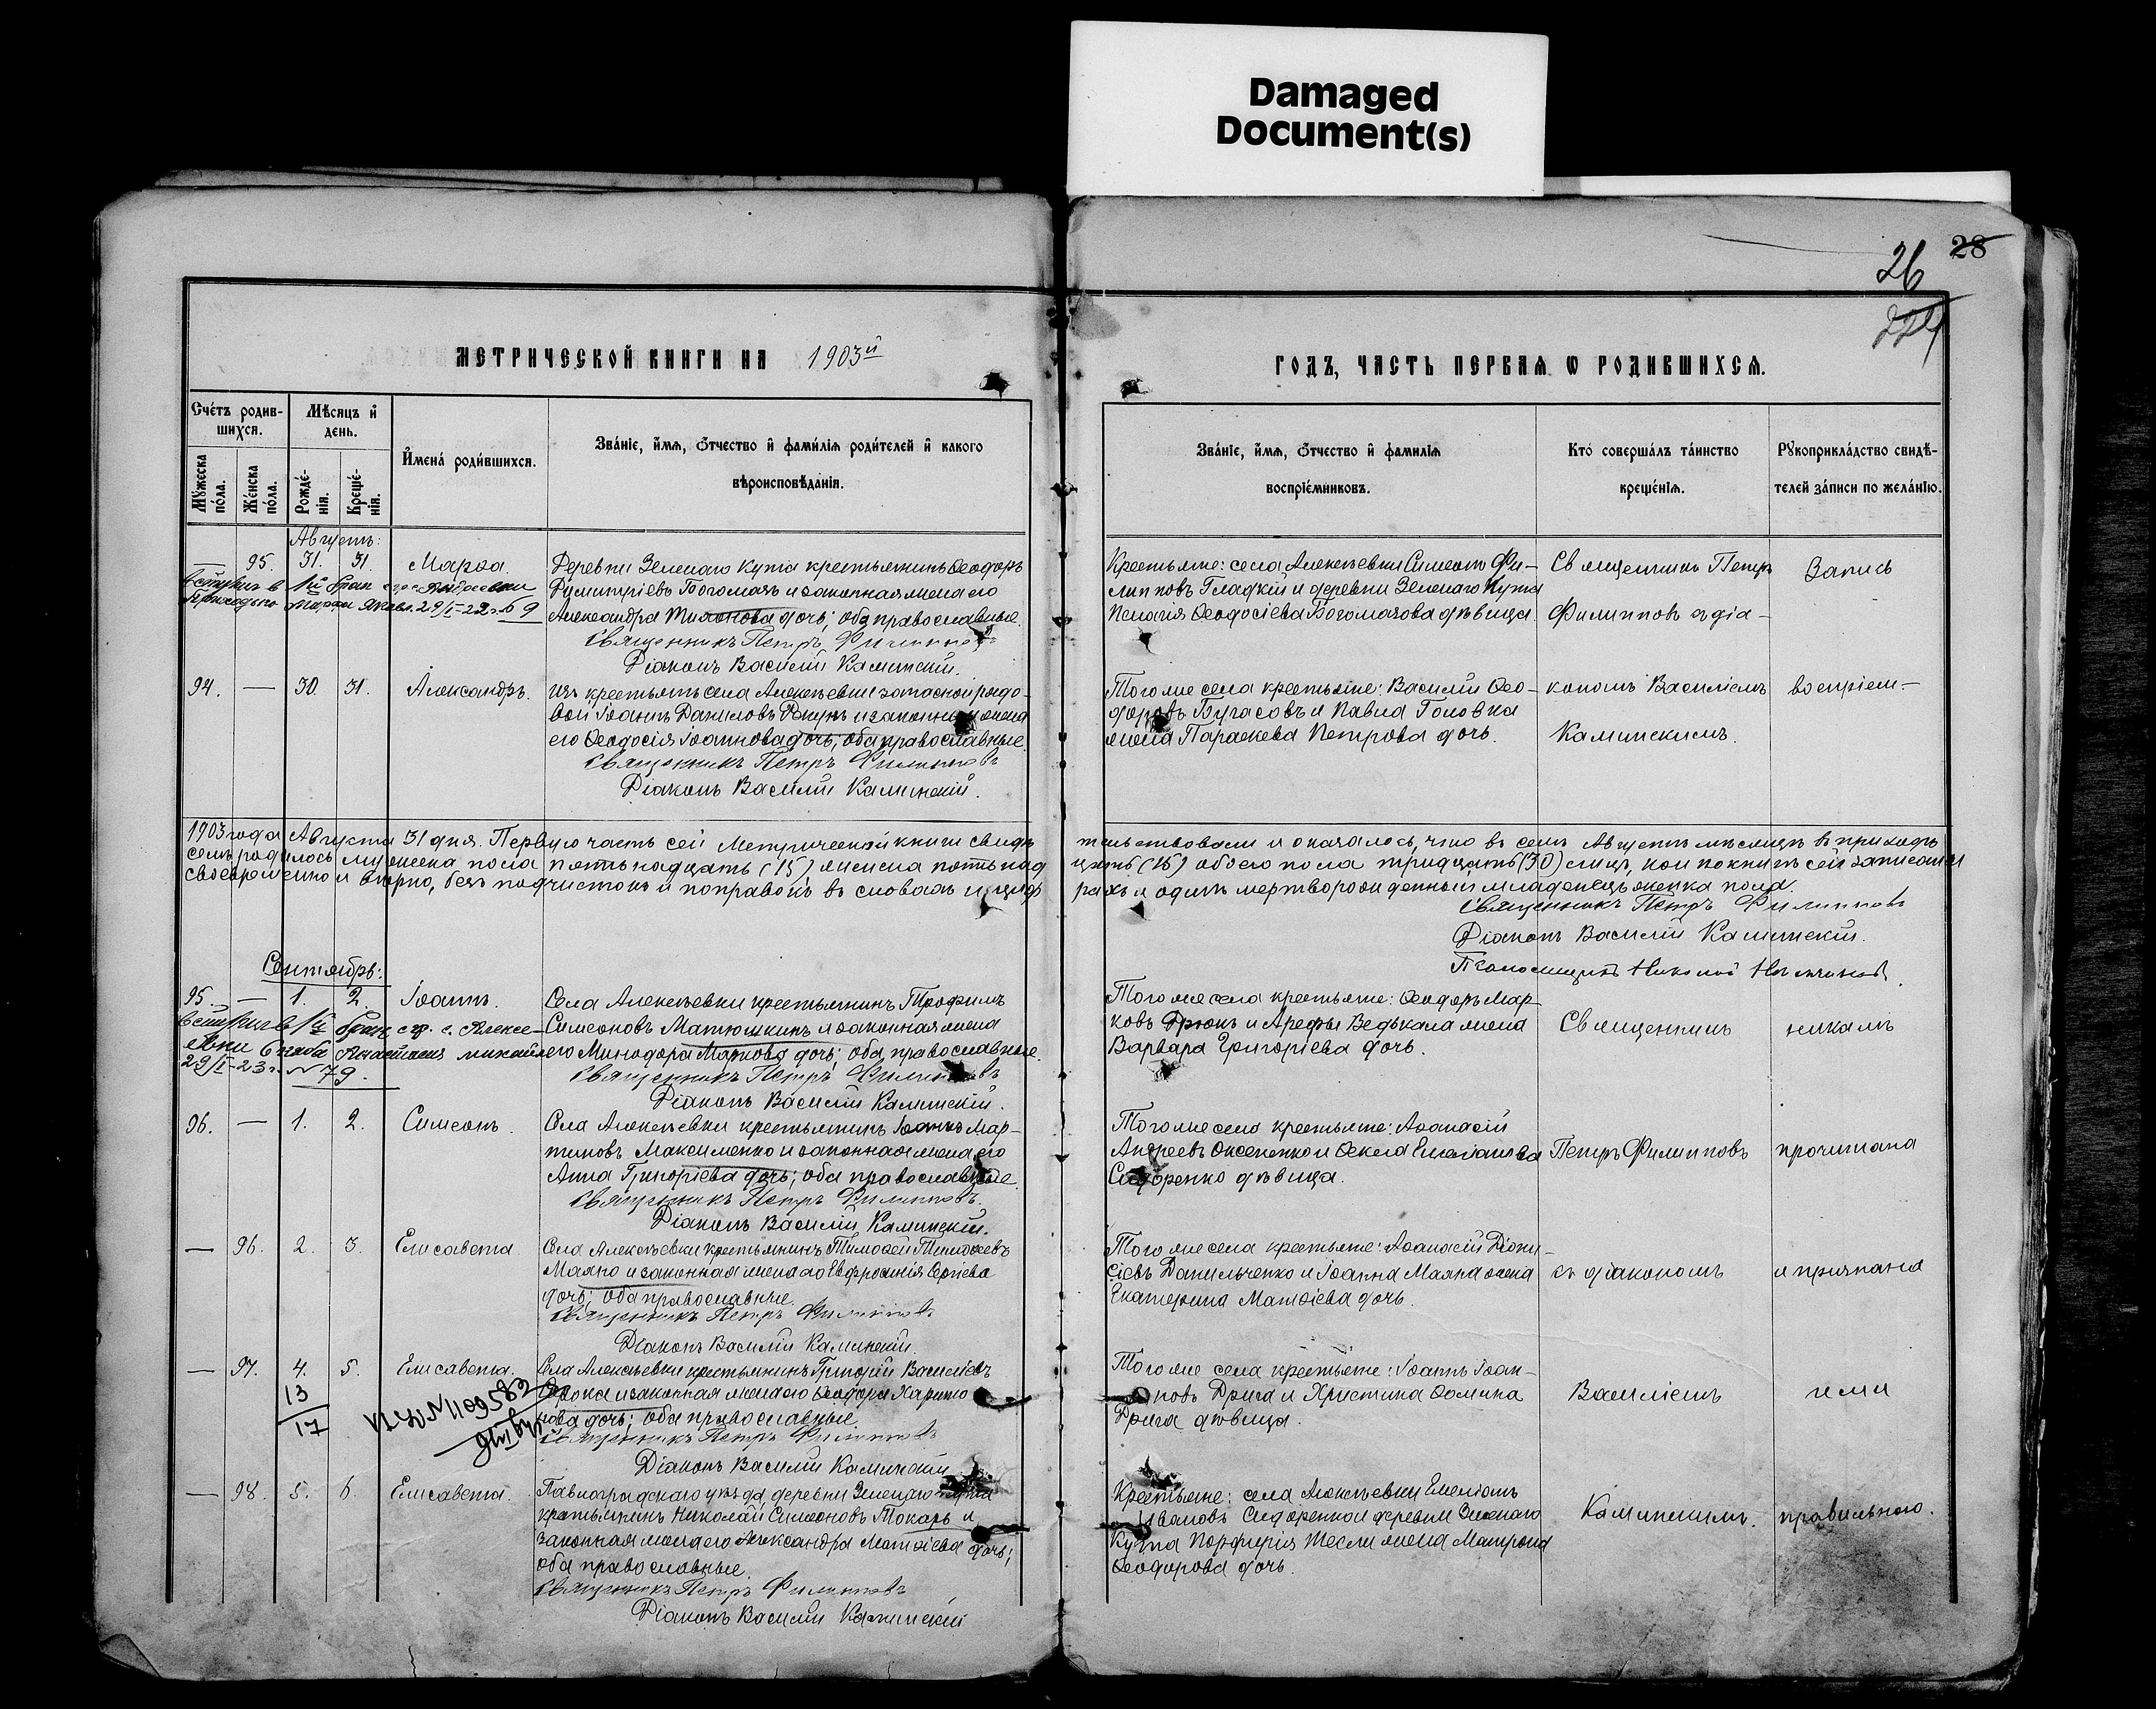 Damaged
Document(s)
28
26
224
МЕТРИЧЕСКОЙ КНИГИ НА 1903й
ГОДЪ, ЧАСТЬ ПЕРВАЯ Ѡ РОДИВШИХСЯ.
Счéтъ родив-
шихся.
Мѣсяцъ и
день.
Мужеска
пóла.
Жéнска
пóла.
Рождé-
нія.
Крещé-
нія.
Именá родившихся.
Звáніе, имя, ѻтчество и фамилія родителей и какого
вѣроисповѣданія.
Звáніе, имя, ѻтчество и фамилія
воспріéмниковъ.
Ктó совершáлъ тáинство
крещéнія.
Рукоприклáдство свидѣ-
телей зáписи по желáнію.
Августъ:
— 95. 31. 31. Марѳа.
Деревни Зеленаго Кута крестьянинъ Ѳеодоръ
Димитріевъ Богомазъ и законная жена его
Александра Тихонова дочь; оба православные.
Священникъ Петръ Филипповъ
Діаконъ Василій Калинскій.
вступил в 1й брак с гр.
29/I-22г. № 9
Крестьяне: села Алексѣевки Симеонъ Фи-
липповъ Гладкій и деревни Зеленаго Кута
Пелагія Ѳеодосіева Богомазова дѣвица.
Священникъ Петръ
Филипповъ съ діа-
Запись
94. — 30. 31. Александръ.
Изъ крестьянъ села Алексѣевки запасной рядо-
вой Іоаннъ Даниловъ и законная жена
его Ѳеодосія Іоаннова дочь; оба православные.
Священникъ Петръ Филипповъ
Діаконъ Василій Калинскій.
Того же села крестьяне: Василій Ѳео-
доровъ Бугасовъ и Павла Головка
жена Параскева Петрова дочь.
кономъ Василіемъ
Калинскимъ.
воспріем-
1903 года Августа 31 дня. Первую часть сей Метрической книги свидѣ
тельствовали и оказалось, что въ семъ Августѣ мѣсяцѣ въ приходѣ
семъ родилось мужеска пола пятьнадцать (15) женска пятьнад
цать (15) обоего пола тридцать (30) лицъ, кои по книгѣ сей записаны
своевременно и вѣрно, безъ подчистокъ и поправокъ въ словахъ и циф
рахъ и одинъ мертворожденный младенецъ женска пола.
Священникъ Петръ Филипповъ
Діаконъ Василій Калинскій.
Псаломщикъ Николай
Сентябрь:
95. — 1. 2. Іоаннъ.
Села Алексѣевки крестьянинъ Трофимъ
Симеоновъ Матюшкинъ и законная жена
его Минодора Маркова дочь; оба православные.
Священникъ Петръ Филипповъ
Діаконъ Василій Калинскій.
вступил в 1й брак с гр. с. Алексе-
евки Анастасия Михайл
29/I-23г. № 79.
Того же села крестьяне: Ѳеодоръ Мар-
ковъ Дрюкъ и Арефы Ведькала жена
Варвара Григоріева дочь.
Священникъ
никамъ
96. — 1. 2. Симеонъ.
Села Алексѣевки крестьянинъ Іоаннъ Мар-
тиновъ Максименко и законная жена его
Анна Григоріева дочь; оба православные.
Священникъ Петръ Филипповъ.
Діаконъ Василій Калинскій.
Того же села крестьяне: Аѳанасій
Андреевъ Оксененко и Ѳекла Емеліанова
Сидоренко дѣвица.
Петръ Филипповъ
прочитана
— 96. 2. 3. Елисавета.
Села Алексѣевки крестьянинъ Тимоѳей Тимоѳеевъ
Маяно и законная жена его Евфросинія Сергіева
дочь; оба православные.
Священникъ Петръ Филипповъ
Діаконъ Василій Калинскій.
Того же села крестьяне: Аѳанасій Діони-
сіевъ Данильченко и Іоанна Маяна жена
Екатерина Матѳіева дочь.
съ діакономъ
и признана
— 97. 4. 5. Елисавета.
13
17
VI-ЧО №1109582
Села Алексѣевки крестьянинъ Григорій Василіевъ
Сорока и законная жена его Ѳеодора Харито
нова дочь; оба православные.
Священникъ Петръ Филипповъ
Діаконъ Василій Калинскій
Того же села крестьяне: Іоаннъ Іоан-
новъ Дрига и Христина Ѳомина
Дрига дѣвица.
Василіемъ
ими
— 98. 5. 6. Елисавета.
Павлоградскаго уѣзда, деревни Зеленаго Кута
крестьянинъ Николай Симеоновъ Токарь и
законная жена его Александра Матѳіева дочь;
оба православные.
Священникъ Петръ Филипповъ
Діаконъ Василій Калинскій
Крестьяне: села Алексѣевки Емеліанъ
Ивановъ Сидоренко и деревни Зеленаго
Кута Порфирія Тесли жена Матрона
Ѳеодорова дочь.
Калинскимъ.
правильною.